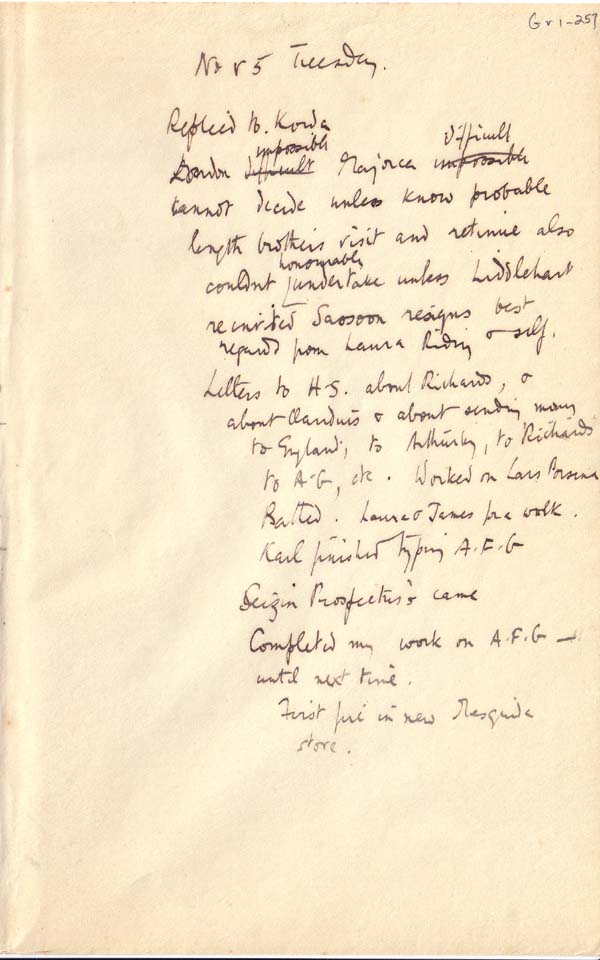 Gr 1-257
Nov 5 Tuesday.
Replied to Korda
impossible difficult
London difficult Majorca impossible
cannot decide unless know probable
length brothers visit and retinue also
honourably
couldn't undertake unless Liddlehart
reinvited Sassoon resigns best
regards from Laura Riding & self.
Letters to H.S. about Richards, &
about & about sending money
to England, to to Richards
to A-G, etc. Worked on Lars Porsena
Bathed. Laura & James for a walk.
Karl finished typing A.F.G
Seizin Prospectus's came
Completed my work on A.F.G —
until next time.
First fire in new Mesquida
stove.